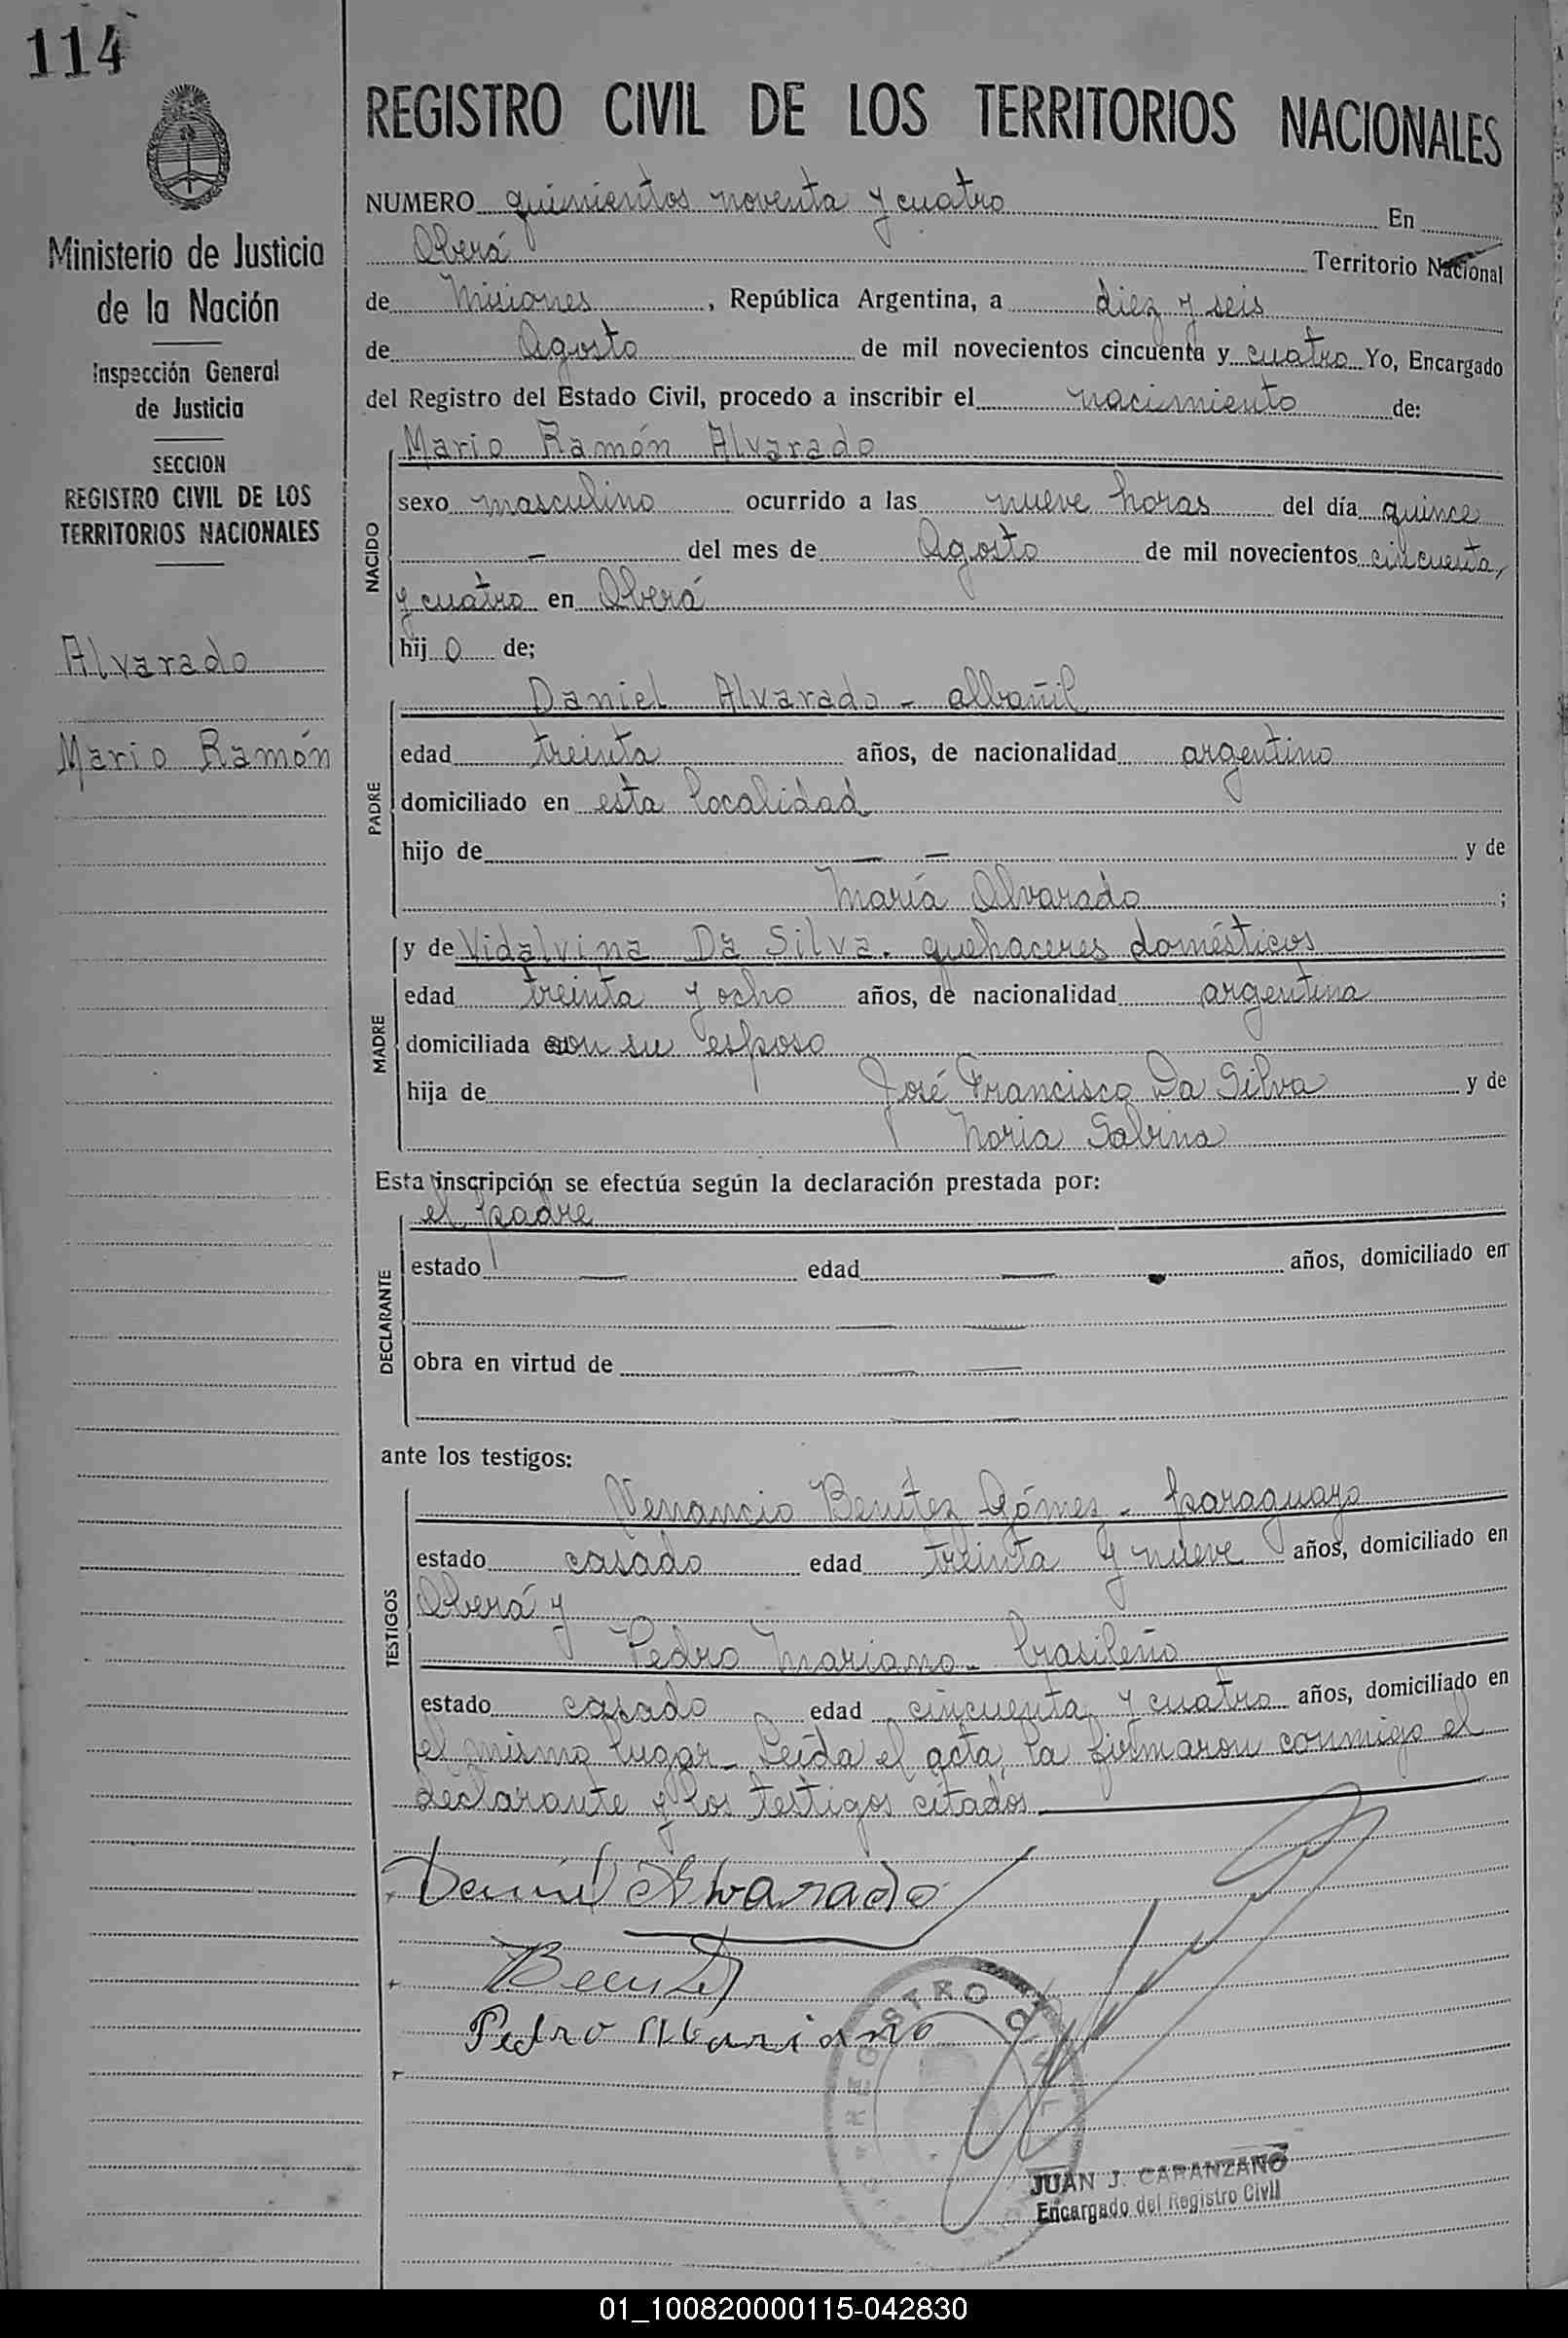 114
Ministerio de Justicia
de la Nación
Inspección General
de Justicia
SECCION
REGISTRO CIVIL DE LOS
TERRITORIOS NACIONALES
Alvarado
Mario Ramón
REGISTRO CIVIL DE LOS TERRITORIOS NACIONALES
NUMERO quinientos noventa y cuatro En
Oberá Territorio Nacional
de Misiones, República Argentina, a diez y seis
de Agosto de mil novecientos cincuenta y cuatro Yo, Encargado
del Registro del Estado Civil, procedo a inscribir el nacimiento de:
NACIDO
Mario Ramón Alvarado
sexo masculino ocurrido a las nueve horas del día quince
— del mes de Agosto de mil novecientos cincuenta
y cuatro en Oberá
hijo de;
PADRE
Daniel Alvarado - albañil
edad treinta años, de nacionalidad argentino
domiciliado en esta localidad
hijo de — — y de
María Alvarado ;
MADRE
y de Vidalvina Da Silva. quehaceres domésticos
edad treinta y ocho años, de nacionalidad argentina
domiciliada con su esposo
hija de José Francisco Da Silva y de
María Sabina
Esta inscripción se efectúa según la declaración prestada por:
DECLARANTE
el padre
estado — edad — años, domiciliado en
— —
obra en virtud de — —
— —
ante los testigos:
TESTIGOS
Venancio Benítez Gómez - paraguayo
estado casado edad treinta y nueve años, domiciliado en
Oberá y
Pedro Mariano - brasileño
estado casado edad cincuenta y cuatro años, domiciliado en
el mismo lugar - Leída el acta, la firmaron conmigo el
declarante y los testigos citados
Daniel Alvarado
Benitez
Pedro Mariano
REGISTRO CIVIL
JUAN J. CARANZANO
Encargado del Registro Civil
01_100820000115-042830